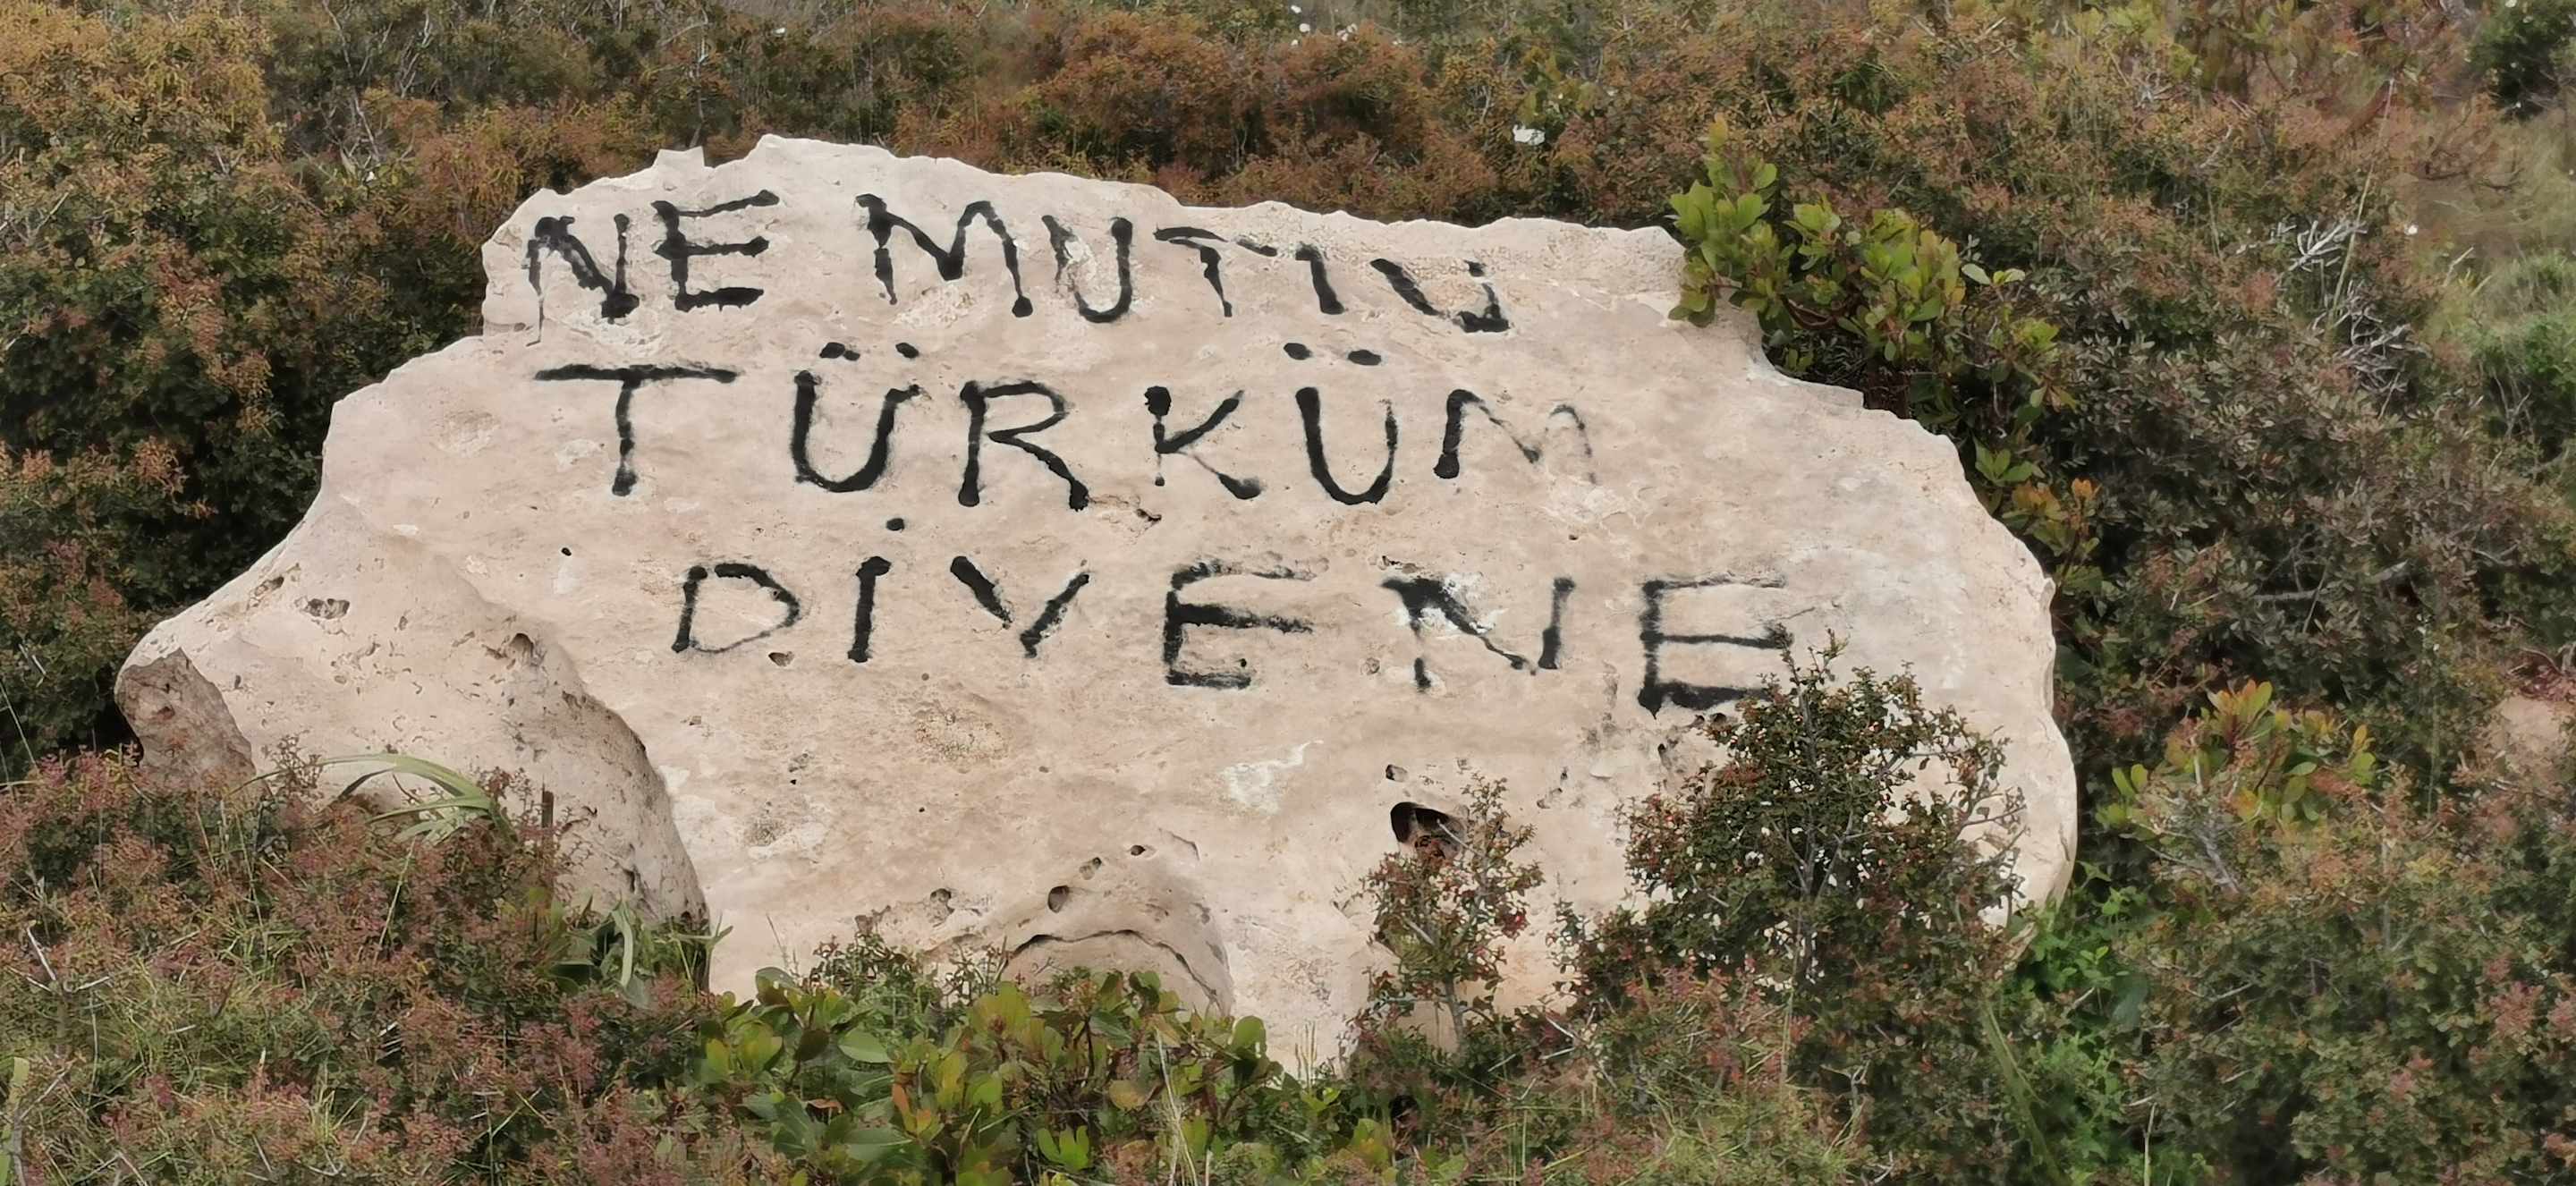 NE MUTLU
TÜRKÜM
DİYENE